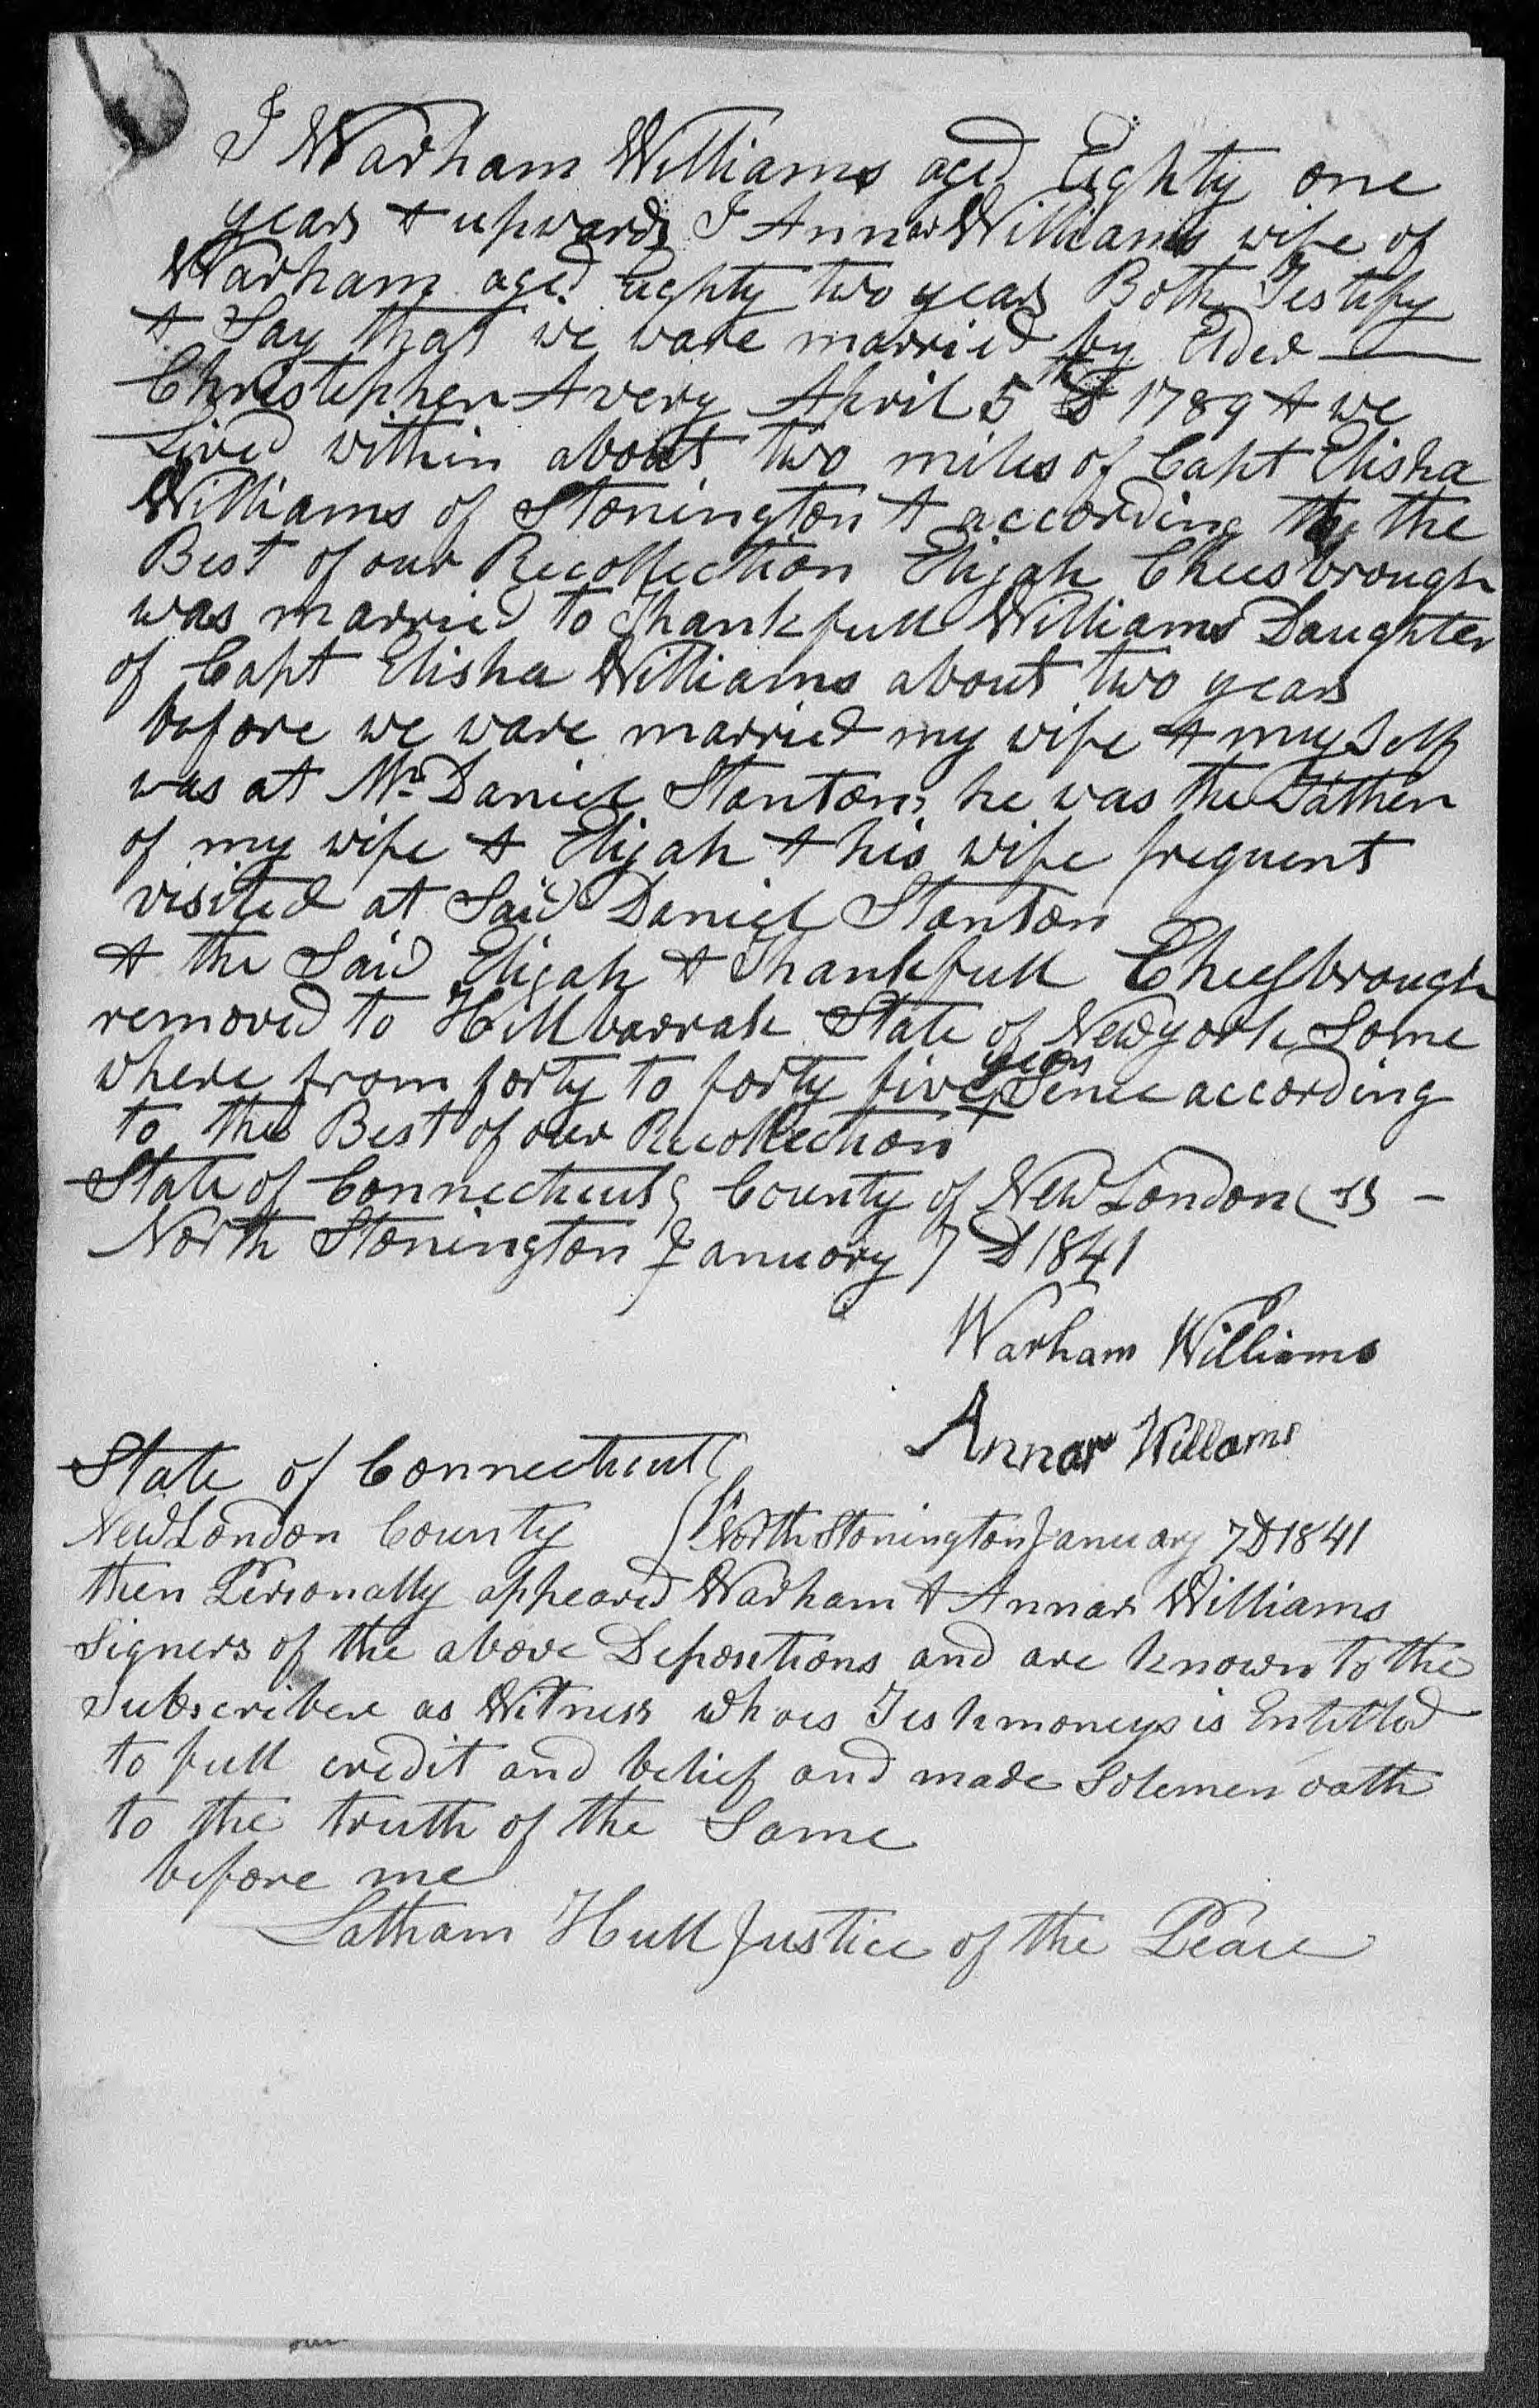 I Warham Williams aged Eighty one
years & upwards I Annar Williams wife of
Warham aged Eighty two years Both Testify
& Say that we ware married by Elder
Christepher Avery April 5th D 1789 & we
Lived within about two miles of Capt Elisha
Williams of Stonington & according the
Best of our Recollection Elijah Cheesbrough
was married to Thankfull Williams Daughter
of Capt Elisha Williams about two years
before we ware married my wife & my Self
was at Mr Daniel Stantons, he was the Father
of my wife & Elijah & his wife frequent
visited at Said Daniel Stanton
& the Said Elijah & Thankfull Chesbrough
removed to Hillbarrak State of Newyork Some
where from forty to forty five years Sence according
to the Best of our Recollection
State of Connecticut County of New London ss -
North Stonington January 7 D 1841
Warham Williams
Annar Willams
State of Connecticut
New London County ss North Stonington January 7 D 1841
then Personally appeared Warham & Annar Williams
Signers of the above Depositions and are known to the
Subscriber as Witness whoes Testimoneys is Entitled
to full credit and belief and made Solemen oath
to the truth of the Same
before me
Latham Hull Justice of the Peace